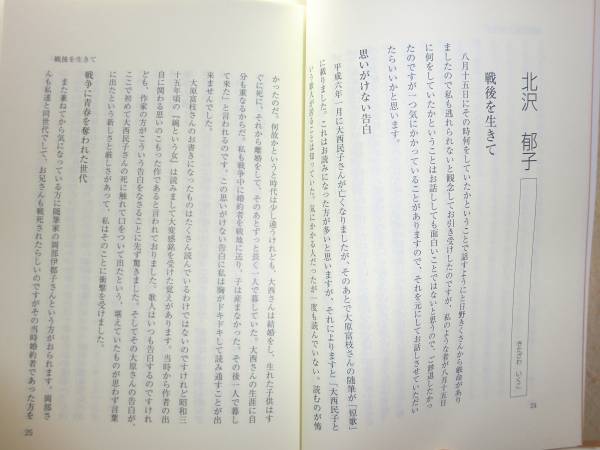 北沢 郁子
きたざわ いくこ
戦後を生きて
八月十五日にその時何をしていたかということで話すようにと日野きくさんから厳命があり
ましたので私も逃れられないと観念してお引き受けしたのですが、私のような者が八月十五日
に何をしていたかということはお話ししても面白いことではないと思うので、ご辞退したかっ
たのですが一つ気にかかっていることがありますので、それを元にしてお話しさせていただい
たらいいかと思います。
思いがけない告白
平成六年一月に大西民子さんが亡くなりましたが、そのあとで大原富枝さんの随筆が「原歌」
に載りました。これはお読みになった方が多いと思いますが、それによりますと「大西民子と
いう歌人が居ることは知っていた。気にかかる人だったが一度も読んでいない。読むのが怖
24
戦後を生きて
かったのだ。何故かというと時代は少し違うけれども、大西さんは結婚をし、生れた子供はす
ぐに死に、それから離婚をして、そのあとずっと長く一人で暮していた。大西さんの生涯に自
分も重なるからだ。私も戦争中に婚約者を戦地に送り、子は産まなかった。その後一人で暮し
て来た」と言われるのです。この思いがけない告白に私は胸がドキドキして読み通すことが出
来ませんでした。
大原富枝さんのお書きになったものはたくさん読んでいるわけではないのですけれど昭和三
十五年頃の『婉という女』は読みまして大変感銘を受けた覚えがあります。当時から作者の出
ども、作家の方がこういう告白をなさることに先ず驚きました。そしてその大原さんの告白が、
ここで初めて大西民子さんの死に触れて口をついて出たという、堪えていたものが思わず言葉
に出たという厳しさが厳しさがあって、私はそのことに衝撃を受けました。
戦争に青春を奪われた世代
また兼ねてから気になっている方に随筆家の岡部伊都子さんという方がおられます。岡部さ
んも私達と同世代でして、お兄さんも戦死されたらしいのですがその当時婚約者であった方を
25